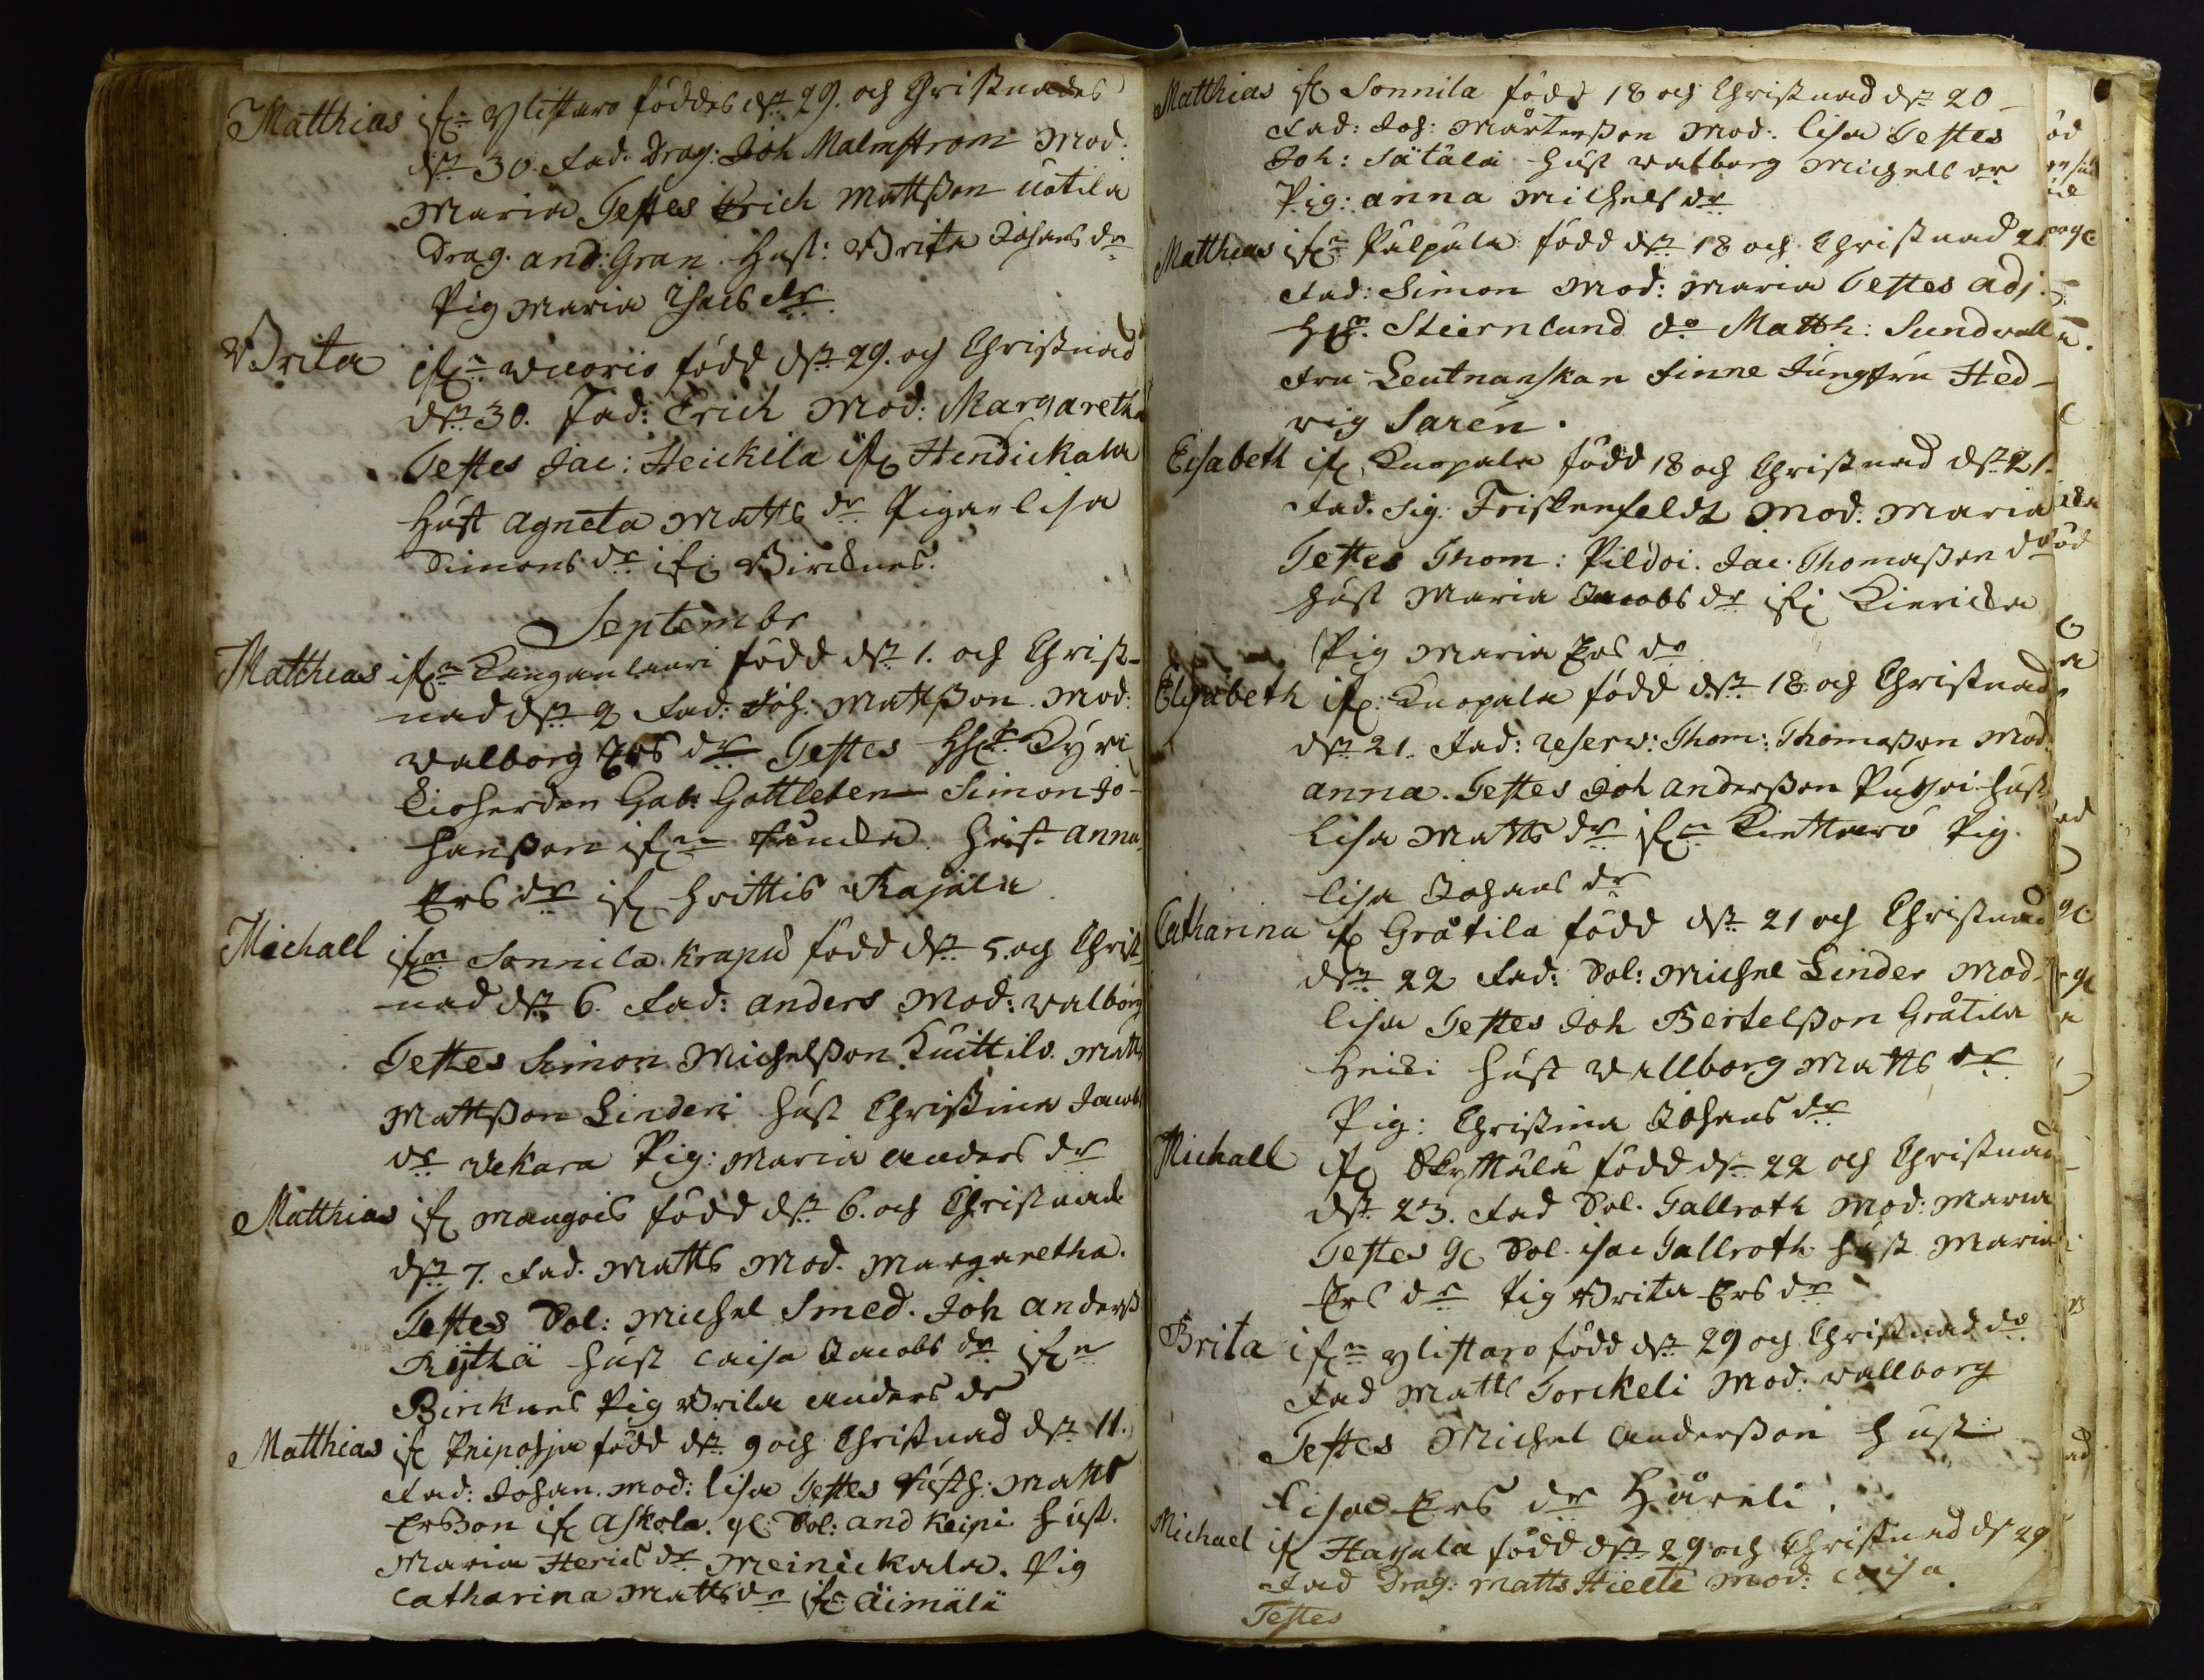 Matthias ifrn Ylistaro föddes dn 29. och Christnades
dn 30. Fad. Drag: Joh Malmstrom Mod:
Maria Testes Erich Mattsson Uotila
Drag. And: Gran. Hust: Brita Johans dr
Pig Maria Isacs dr
Brita ifrn Wuorio född dn 29. och Christnad
dn 30. Fad: Erich Mod: Margaretha
Testes Jac: Heickila ifr Hendickala
Hust Agneta Matts dr Pigan Lisa
Simons dr ifr Bircknes.
Septembr
Matthias ifrn Kangan lauri född dn 1. och Christ-
nad dn 2 Fad: Joh: Mattsson. Mod:
Walborg Ers dr Testes Kyri
Eioherden Gab: Gottleben Simon Jo-
hansson ifrn Hust Anna
Ers dr ifr Hvittis Rajala
Michaell ifrn Sonnila Krapu född dn 5. och Christ
nad dn 6. Fad: Anders Mod: Walborg
Testes Simon Michelsson Kuittilo. Matts
Mattsson Linderi Hust Christina Jacobs
dr Wekara Pig: Maria Anders dr
Matthias ifr Maugois född dn 6. och Christnade
dn 7. Fad. Matts Mod. Margaretha.
Testes Sol: Michel Smed. Joh Anderss
Rythä Hust Caisa Jacobs dr ifrn
Bircknes Pig Brita Anders dr
Matthias ifr född dn 9 och Christnad dn 11.
Fad: Johan. Mod: Lisa Testes Matts
Ersson ifr Askola. gl: Sol: And Keipi Hust.
Maria Herics dr Meinickala. Pig
Catharina Matts dr ifr Äimälä
Matthias ifr Sonnila född 18 och Christnad dn 20-
Fad: Joh: Mårtensson Mod: Lisa Testes
Joh: Sätälä Hust Walborg Michels dr
Pig: Anna Michels dr
Matthias ifrn Pälpälä född dn 18 och Christnad 21
Fad: Simon Mod: Maria Testes Adj:
Hr Stiernlund do Matth: Sundwall
Fru Leutnanskan Finne Jungfru Hed-
vig Saren.
Elsabeth ifr Knopala född 18 och Christnad dn 21.
Fad. Sig: Friskenfeldt Mod. Maria
Testes Thom: Pildoi. Jac. Thomasson dr
Hust Maria Jacobs dr ifr
Pig Maria Ers dr
Elisabeth ifr: Knopala född dn 18 och Christnad
dn 21. Fad: reserv: Thom: Thomasson Mod:
Anna. Testes Joh Andersson Hust
Lisa Matts dr ifrn Pig.
Lisa Johans dr
Catharina ifr Gråtila född dn 21 och Christnad
dn 22 Fad: Sol: Michel Linder Mod:
Lisa Testes Joh Bertelsson Gråtila
Heiki Hust Wallborg Matts dr
Pig: Christina Johans dr
Michaell ifr Skyttälä född dn 22 och Christnad
dn 23. Fad Sol. Tallroth Mod: Maria
Testes gl Sol Isac Tallroth Hust Maria
Ers dr Pig Brita Ers dr
Brita ifrn Ylistaro född dn 29 och Christnad do
Fad Matts Torckeli Mod: Wallborg
Testes Michel Andersson Hust:
Lisa Ers dr Håreli.
Michael ifr Hayala född dn 29 och Christnad dn 29
Fad Drag: Matts Hielte Mod: Caisa.
Testes